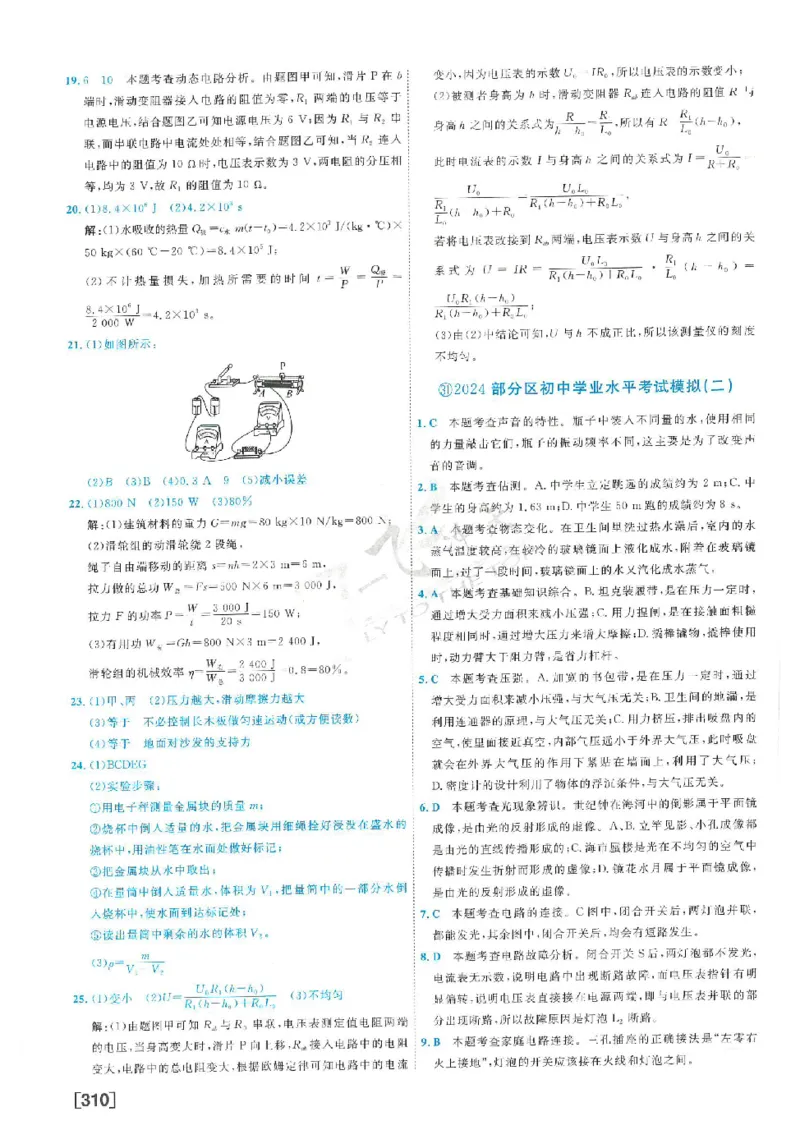 19. 6 10 本题考查动态电路分析。由题图甲可知,滑片 P 在 b
端时,滑动变阻器接入电路的阻值为零,R₁ 两端的电压等于
电源电压,结合题图乙可知电源电压为 6 V;因为 R₁ 与 R₂ 串
联,而串联电路中电流处处相等,结合题图乙可知,当 R₂ 连入
电路中的阻值为 10 Ω时,电压表示数为 3 V,两电阻的分压相
等,均为 3 V,故 R₁ 的阻值为 10 Ω。
20. (1)8.4×10⁶ J (2)4.2×10³ s
解:(1)水吸收的热量 Q吸=c水 m(t-t₀)=4.2×10³ J/(kg·℃)×
50 kg×(60 ℃-20 ℃)=8.4×10⁶ J;
(2) 不计热量损失,加热所需要的时间 t = W/P = Q吸/P =
8.4×10⁶ J/2 000 W=4.2×10³ s。
21. (1)如图所示:
P
A B
(2)B (3)B (4)0.3 A 9 (5)减小误差
22. (1)800 N (2)150 W (3)80%
解:(1)建筑材料的重力 G=mg=80 kg×10 N/kg=800 N;
(2)滑轮组的动滑轮绕 2 段绳,
绳子自由端移动的距离 s=nh=2×3 m=6 m,
拉力做的总功 W总=Fs=500 N×6 m=3 000 J,
拉力 F 的功率P=W/t=3 000 J/20 s=150 W;
(3)有用功 W有=Gh=800 N×3 m=2 400 J,
滑轮组的机械效率 η=W有/W总=2 400 J/3 000 J=0.8=80%。
23. (1)甲、丙 (2)压力越大,滑动摩擦力越大
(3)等于 不必控制长木板做匀速运动(或方便读数)
(4)等于 地面对沙发的支持力
24. (1)BCDEG
(2)实验步骤:
①用电子秤测量金属块的质量 m;
②烧杯中倒入适量的水,把金属块用细绳拴好浸没在盛水的
烧杯中,用油性笔在水面处做好标记;
③把金属块从水中取出;
④在量筒中倒入适量水,体积为 V₁,把量筒中的一部分水倒
入烧杯中,使水面到达标记处;
⑤读出量筒中剩余的水的体积 V₂。
(3)ρ=m/(V₁-V₂)
25. (1)变小 (2)U=U₀R₁(h-h₀)/(R₁(h-h₀)+R₀L₀) (3)不均匀
解:(1)由题图甲可知 Rab与 R₀ 串联,电压表测定值电阻两端
的电压,当身高变大时,滑片 P 向上移,Rab接入电路中的电阻
变大,电路中的总电阻变大,根据欧姆定律可知电路中的电流
变小,因为电压表的示数 U₀=IR₀,所以电压表的示数变小;
(2)被测者身高为 h 时,滑动变阻器 Rab连入电路的阻值 R 与
身高 h 之间的关系式为R/(h-h₀)=R₁/L₀,所以有 R=R₁/L₀(h-h₀),
此时电流表的示数 I 与身高 h 之间的关系式为 I=U₀/(R+R₀)
=U₀/(R₁/L₀(h-h₀)+R₀)=U₀L₀/(R₁(h-h₀)+R₀L₀),
若将电压表改接到 Rab两端,电压表示数 U 与身高 h 之间的关
系式为 U = IR = U₀L₀/(R₁(h-h₀)+R₀L₀) · R₁/L₀ (h-h₀) =
U₀R₁(h-h₀)/(R₁(h-h₀)+R₀L₀);
(3)由(2)中结论可知,U 与 h 不成正比,所以该测量仪的刻度
不均匀。
㉛2024 部分区初中学业水平考试模拟(二)
1. C 本题考查声音的特性。瓶子中装入不同量的水,使用相同
的力量敲击它们,瓶子的振动频率不同,这主要是为了改变声
音的音调。
2. B 本题考查估测。A. 中学生立定跳远的成绩约为 2 m;C. 中
学生的身高约为 1.63 m;D. 中学生 50 m 跑的成绩约为 8 s。
3. A 本题考查物态变化。在卫生间里洗过热水澡后,室内的水
蒸气温度较高,在较冷的玻璃镜面上液化成水,附着在玻璃镜
面上,过了一段时间,玻璃镜面上的水又汽化成水蒸气。
4. A 本题考查基础知识综合。B. 坦克装履带,是在压力一定时,
通过增大受力面积来减小压强;C. 用力捏闸,是在接触面粗糙
程度相同时,通过增大压力来增大摩擦;D. 撬棒撬物,撬棒使用
时,动力臂大于阻力臂,是省力杠杆。
5. C 本题考查压强。A. 加宽的书包带,是在压力一定时,通过
增大受力面积来减小压强,与大气压无关;B. 卫生间的地漏,是
利用连通器的原理,与大气压无关;C. 用力挤压,排出吸盘内的
空气,使里面接近真空,内部气压远小于外界大气压,此时吸盘
就会在外界大气压的作用下紧贴在墙面上,利用了大气压;
D. 密度计的设计利用了物体的浮沉条件,与大气压无关。
6. D 本题考查光现象辨识。世纪钟在海河中的倒影属于平面镜
成像,是由光的反射形成的虚像。A、B. 立竿见影、小孔成像都
是由光的直线传播形成的;C. 海市蜃楼是光在不均匀的空气中
传播时发生折射而形成的虚像;D. 镜花水月属于平面镜成像,
是由光的反射形成的虚像。
7. C 本题考查电路的连接。C 图中,闭合开关后,两灯泡并联,
都能发光,其余图中,闭合开关后,均会有短路发生。
8. D 本题考查电路故障分析。闭合开关 S 后,两灯泡都不发光,
电流表无示数,说明电路中出现断路故障,而电压表指针有明
显偏转,说明电压表直接接在电源两端,即与电压表并联的部
分出现断路,所以故障原因是灯泡 L₂ 断路。
9. B 本题考查家庭电路连接。三孔插座的正确接法是“左零右
火上接地”,灯泡的开关应该接在火线和灯泡之间。
[310]